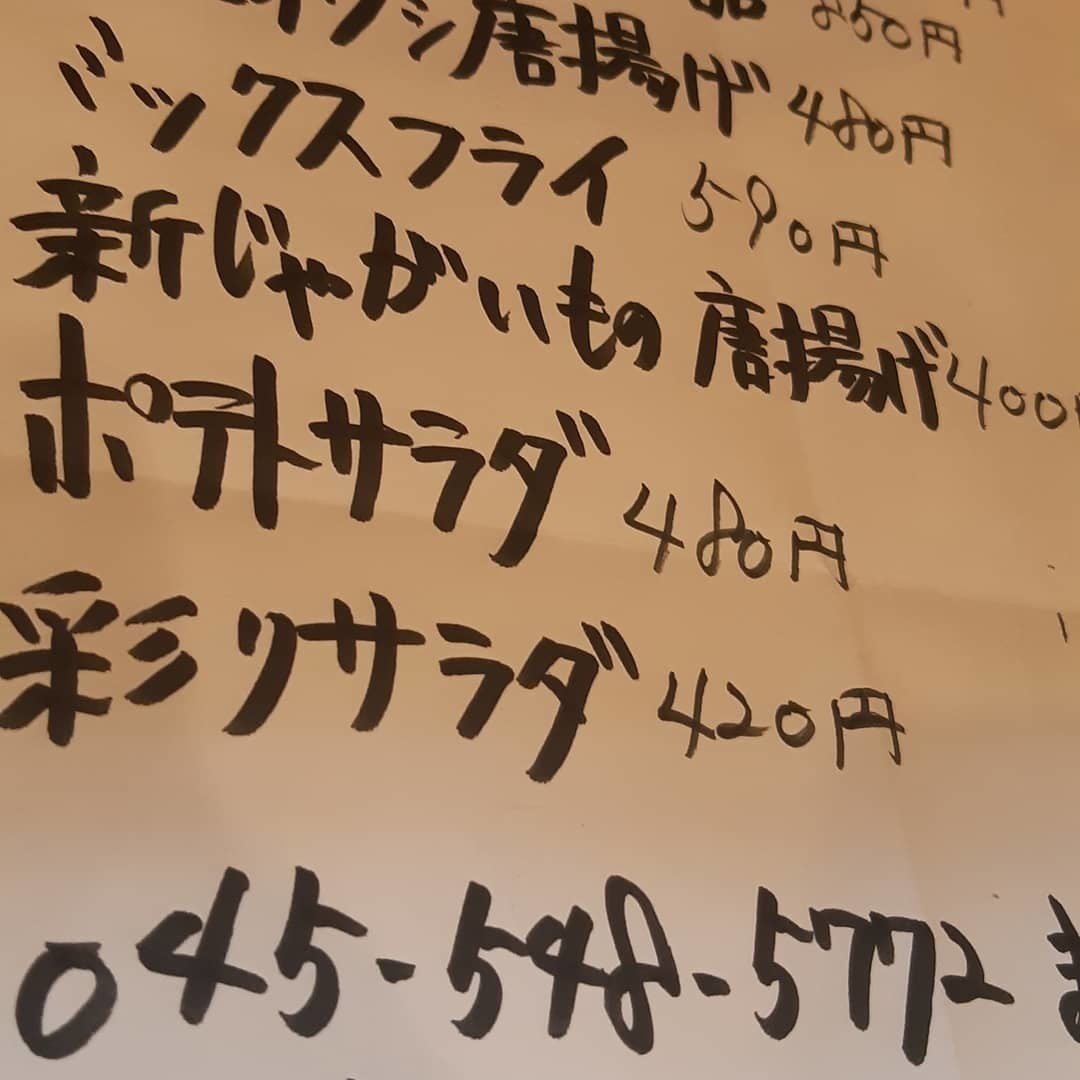 50円
イワシ唐揚げ 480円
ミックスフライ 590円
新じゃがいもの唐揚げ 400
ポテトサラダ 480円
彩りサラダ 420円
045-548-5772 ま